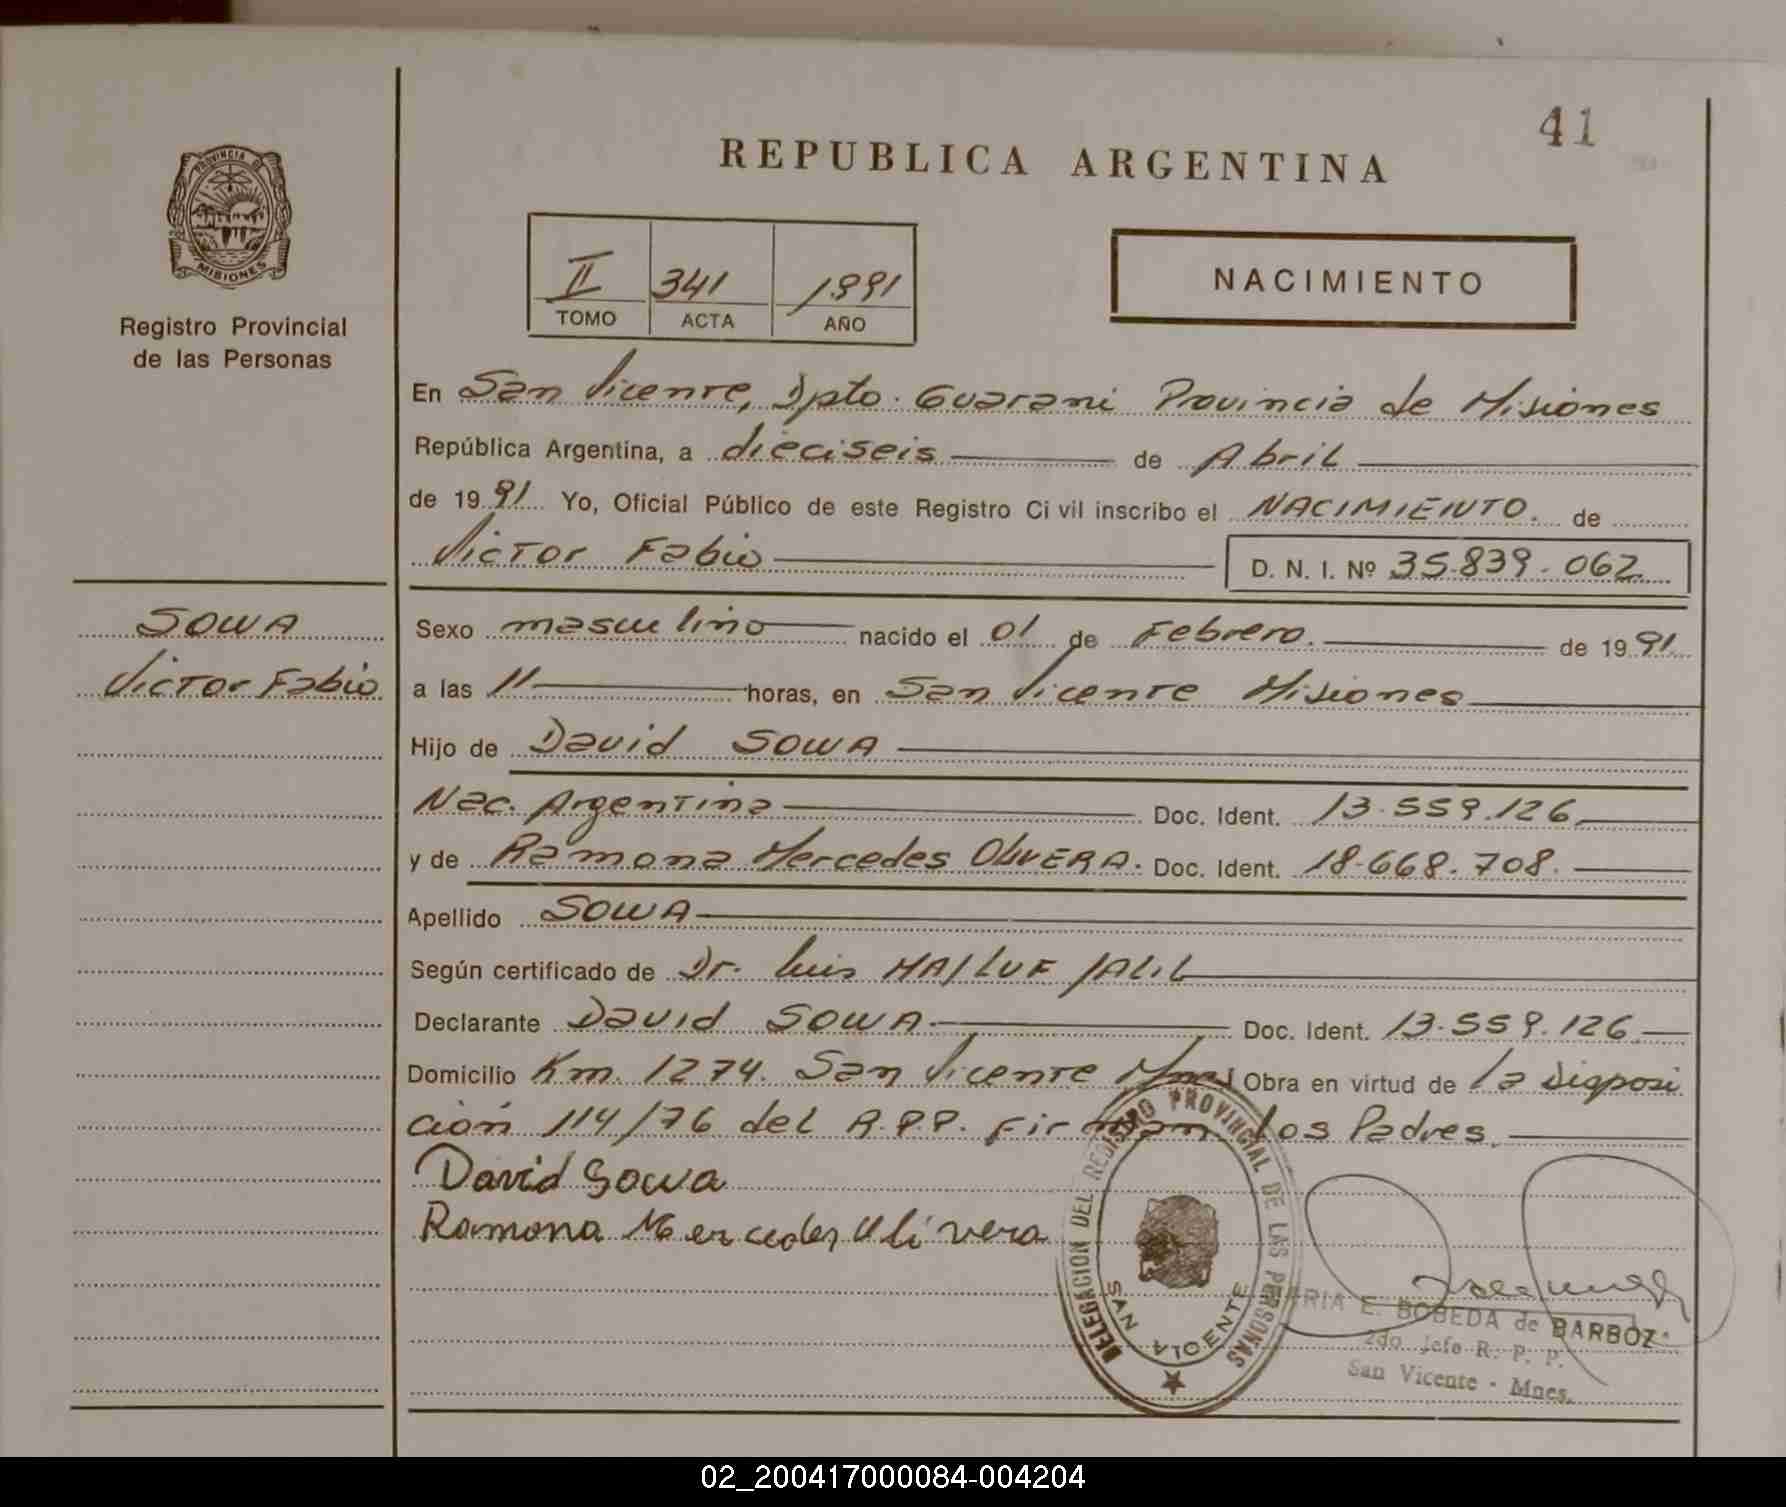 41
REPUBLICA ARGENTINA
PROVINCIA DE
MISIONES
Registro Provincial
de las Personas
II 341 1991
TOMO ACTA AÑO
NACIMIENTO
En San Vicente, Dpto. Guarani Provincia de Misiones
República Argentina, a dieciseis de Abril
de 1991 Yo, Oficial Público de este Registro Civil inscribo el NACIMIENTO. de
Victor Fabio D. N. I. Nº 35.839.062
SOWA
Victor Fabio
Sexo masculino nacido el 01 de Febrero. de 1991
a las 11 horas, en San Vicente Misiones
Hijo de David SOWA
Nac. Argentina Doc. Ident. 13.559.126
y de Ramona Mercedes OLIVERA. Doc. Ident. 18.668.708.
Apellido SOWA
Según certificado de Dr. Luis MAJLUF JALIL
Declarante David SOWA. Doc. Ident. 13.559.126
Domicilio Km. 1274. San Vicente Mnes Obra en virtud de la Disposi
ción 114/76 del R.P.P. Firman los Padres.
David Sowa
Ramona Mercedes Olivera
DELEGACION DEL REGISTRO PROVINCIAL DE LAS PERSONAS
SAN VICENTE
MARIA E. BOBEDA de BARBOZA
2do. Jefe R. P. P.
San Vicente - Mnes.
02_200417000084-004204